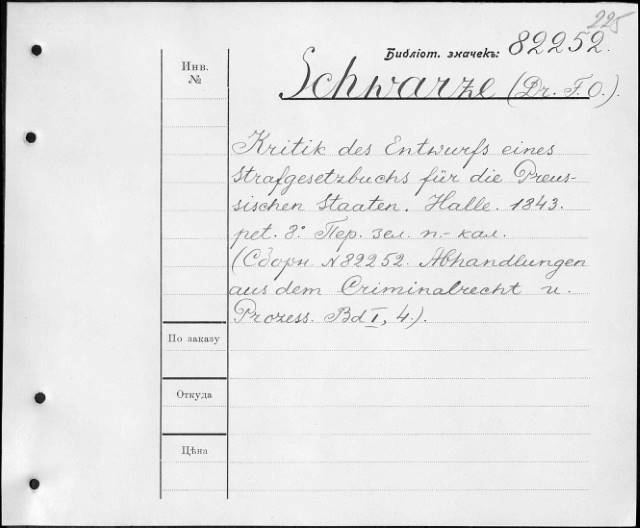 225
Библіот. значекъ: 82252.
Инв.
№
Schwarze (Dr. F. O.).
Kritik des Entwurfs eines
Strafgesetzbuchs für die Preus-
sischen Staaten. Halle. 1843.
pet. 8° Пер. зел. п.-кал.
(Сборн №82252. Abhandlungen
aus dem Criminalrecht u.
Prozess. Bd I, 4.).
По заказу
Откуда
Цѣна